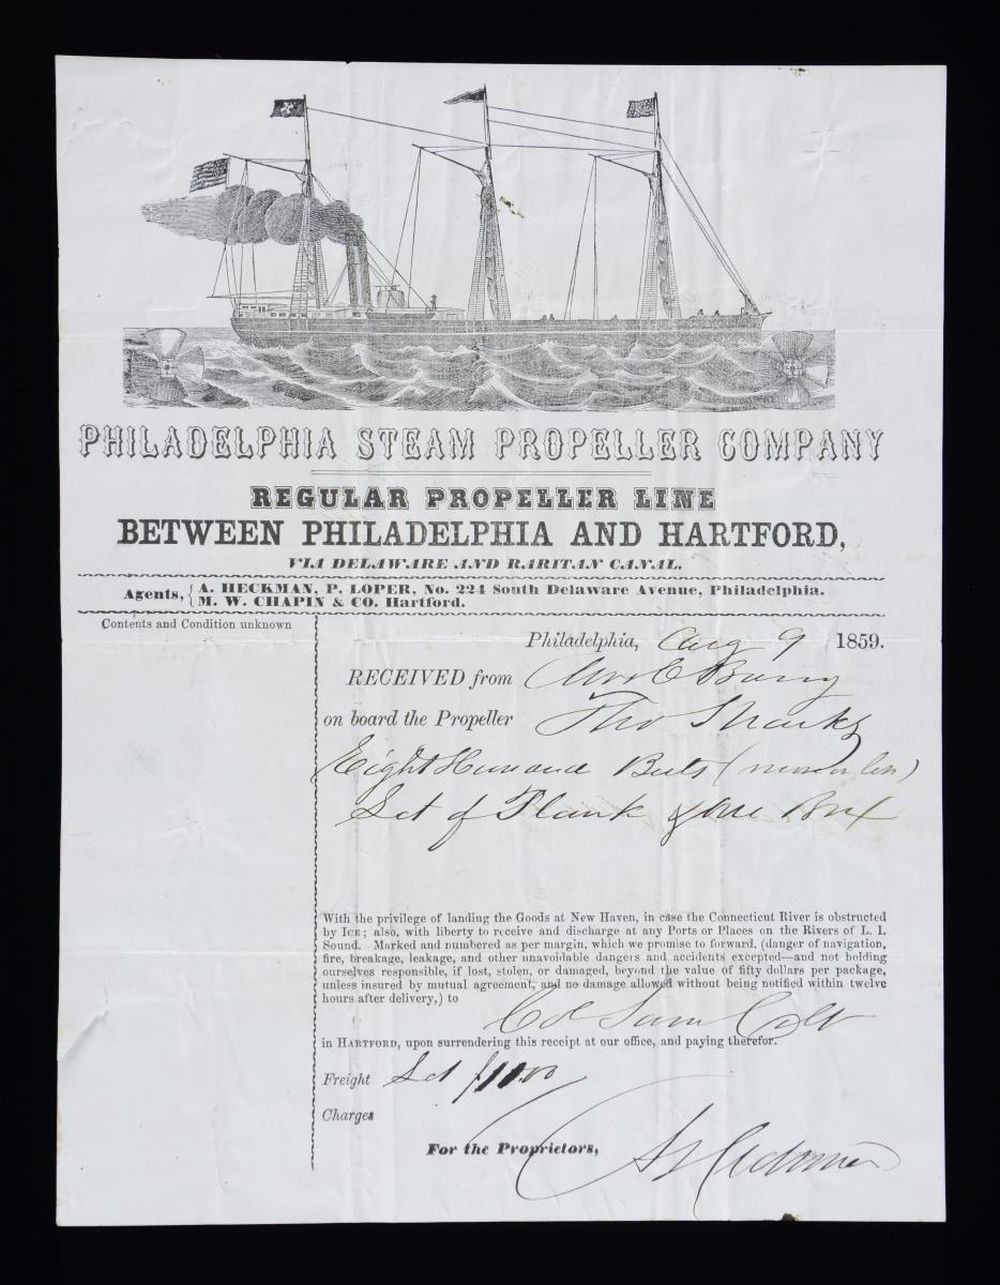 PHILADELPHIA STEAM PROPELLER COMPANY
REGULAR PROPELLER LINE
BETWEEN PHILADELPHIA AND HARTFORD,
VIA DELAWARE AND RARITAN CANAL.
Agents, { A. HECKMAN, P. LOPER, No. 224 South Delaware Avenue, Philadelphia.
M. W. CHAPIN & CO. Hartford.
Contents and Condition unknown
Philadelphia, Aug 9 1859.
RECEIVED from
on board the Propeller Tho Sparks
Eight Hundred (more or less)
Set of Plank & One Box
With the privilege of landing the Goods at New Haven, in case the Connecticut River is obstructed
by ICE; also, with liberty to receive and discharge at any Ports or Places on the Rivers of L. I.
Sound. Marked and numbered as per margin, which we promise to forward, (danger of navigation,
fire, breakage, leakage, and other unavoidable dangers and accidents excepted—and not holding
ourselves responsible, if lost, stolen, or damaged, beyond the value of fifty dollars per package,
unless insured by mutual agreement, and no damage allowed without being notified within twelve
hours after delivery,) to
Col Sam Colt
in HARTFORD, upon surrendering this receipt at our office, and paying therefor.
Freight
Charges
For the Proprietors,